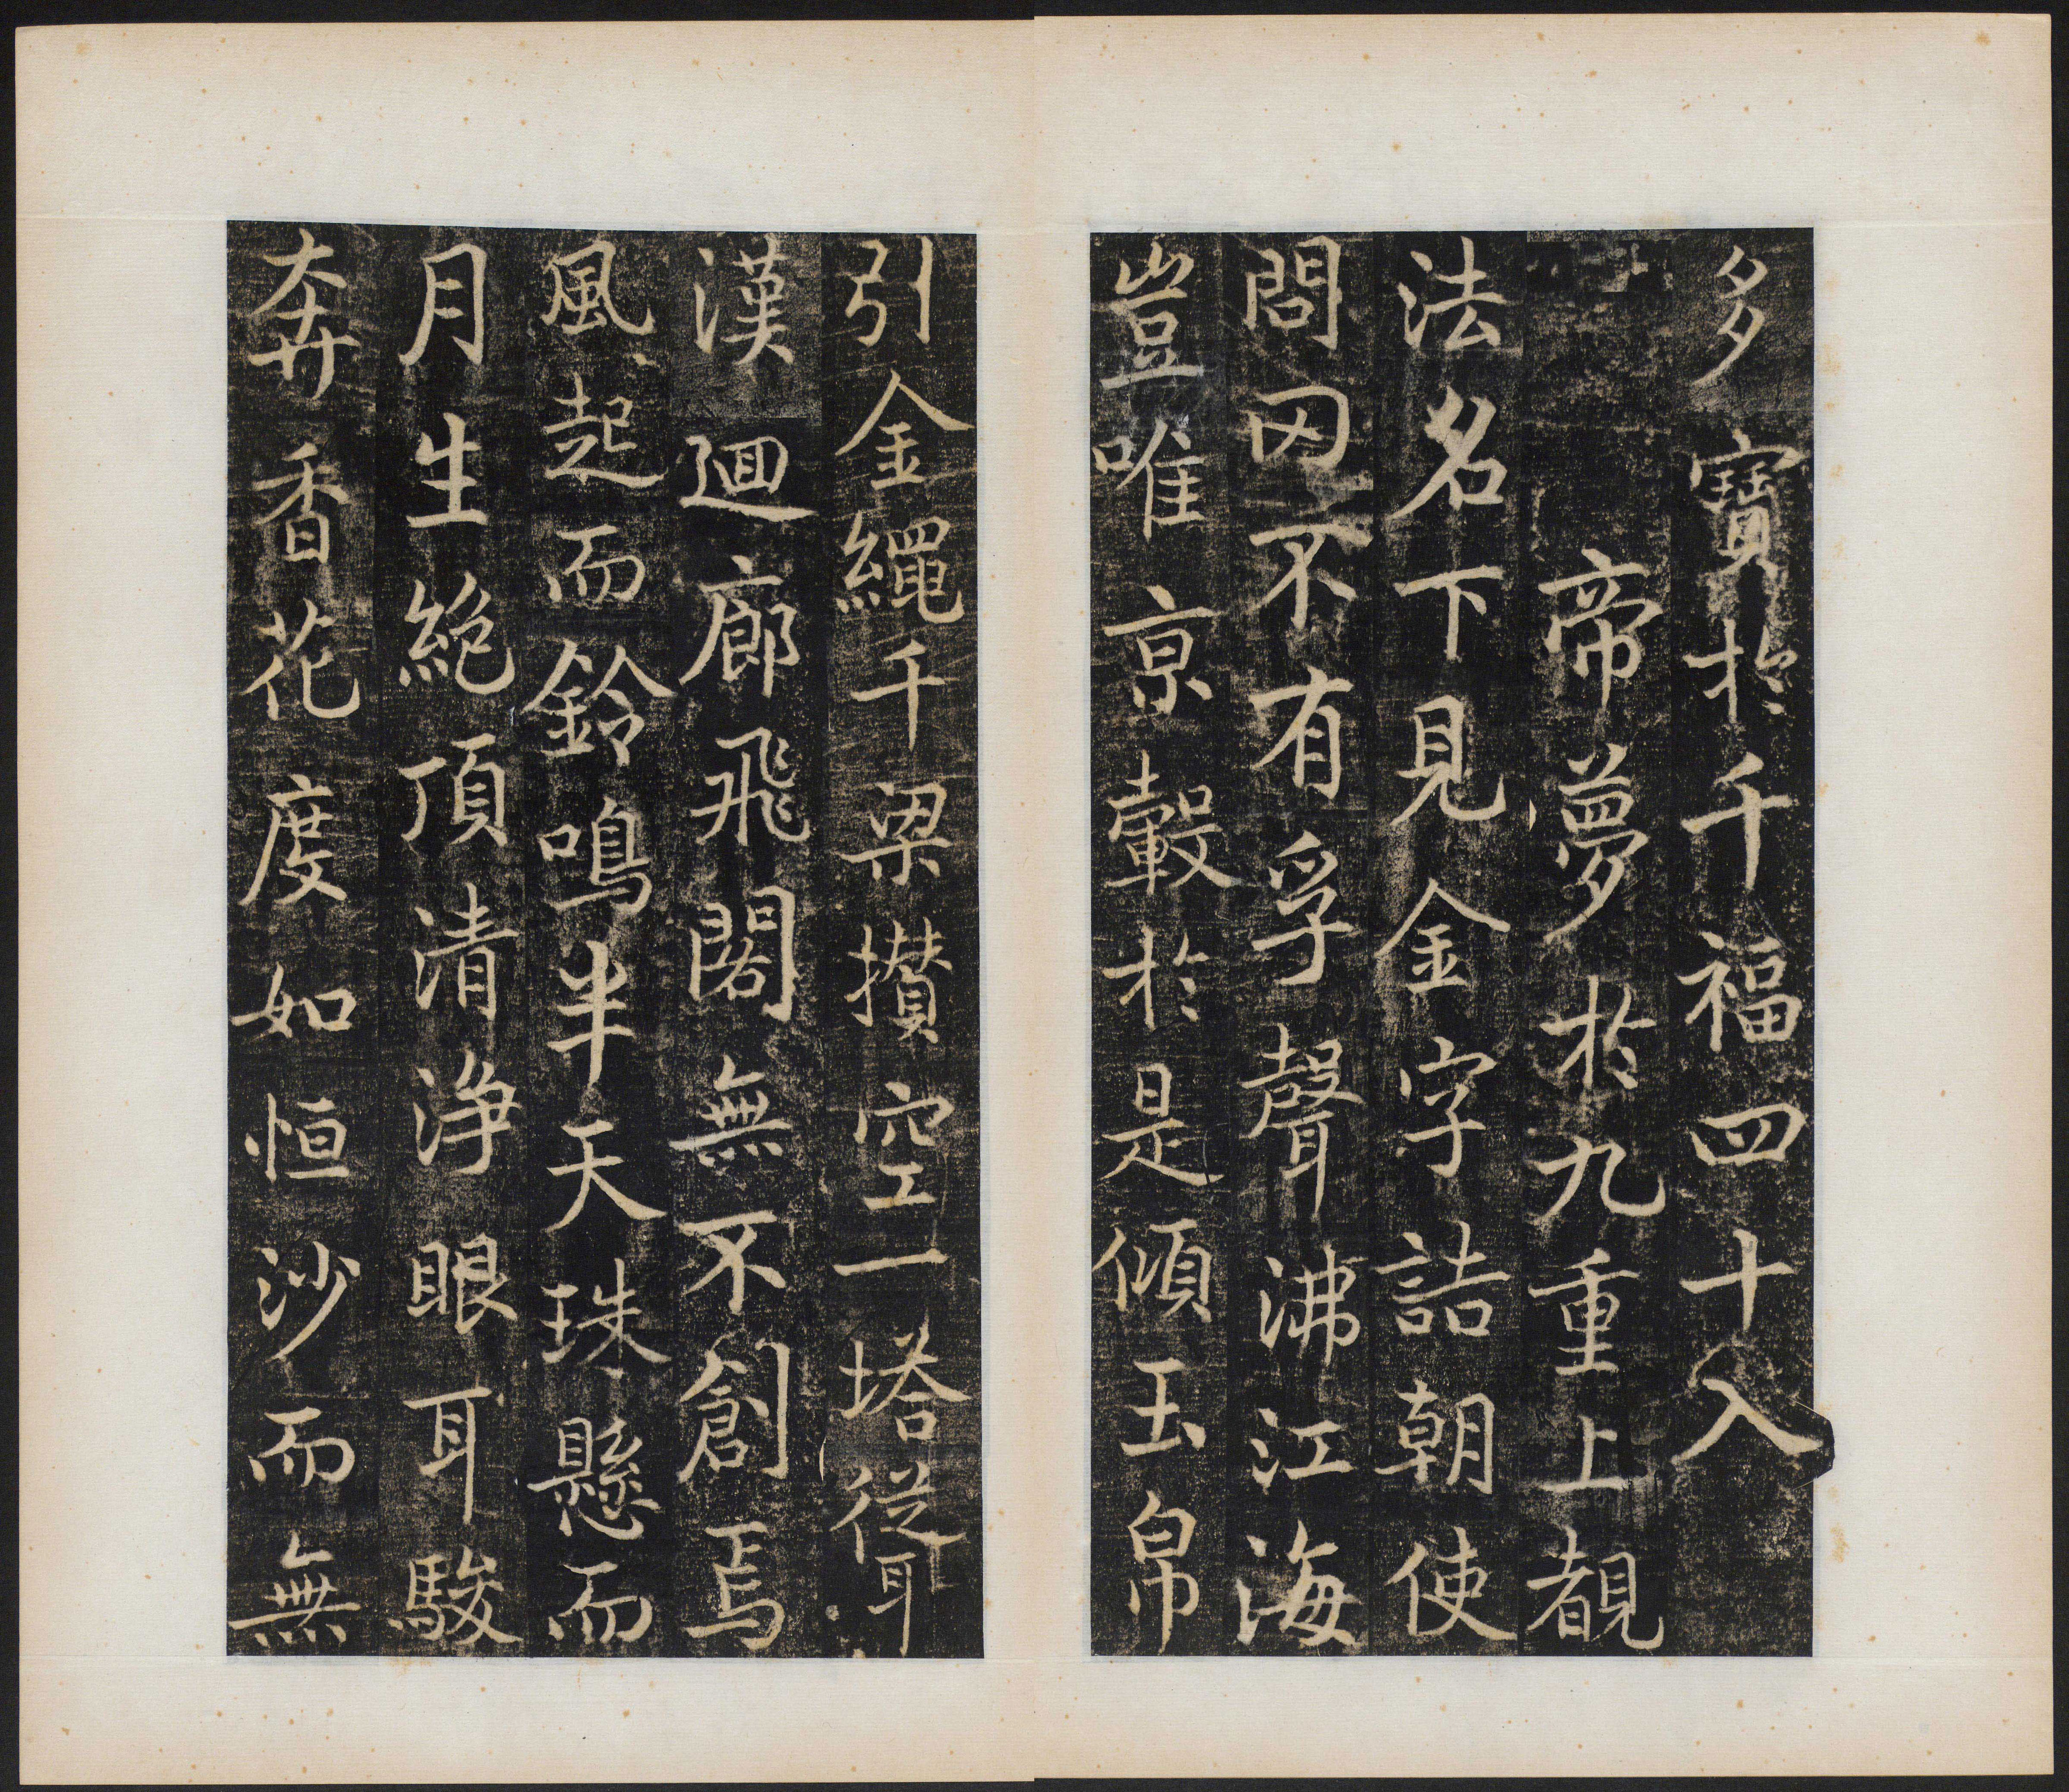 多寶於千福四十入
帝夢於九重上覩
法名下見金字詰朝使
問因不有孚聲沸江海
豈唯京轂於是傾玉帛
引金繩千梁攢空一塔從耳
漢迴廊飛閣無不創焉
風起而鈴鳴半天珠懸而
月生絕頂清淨眼耳駿
奔香花度如恒沙而無